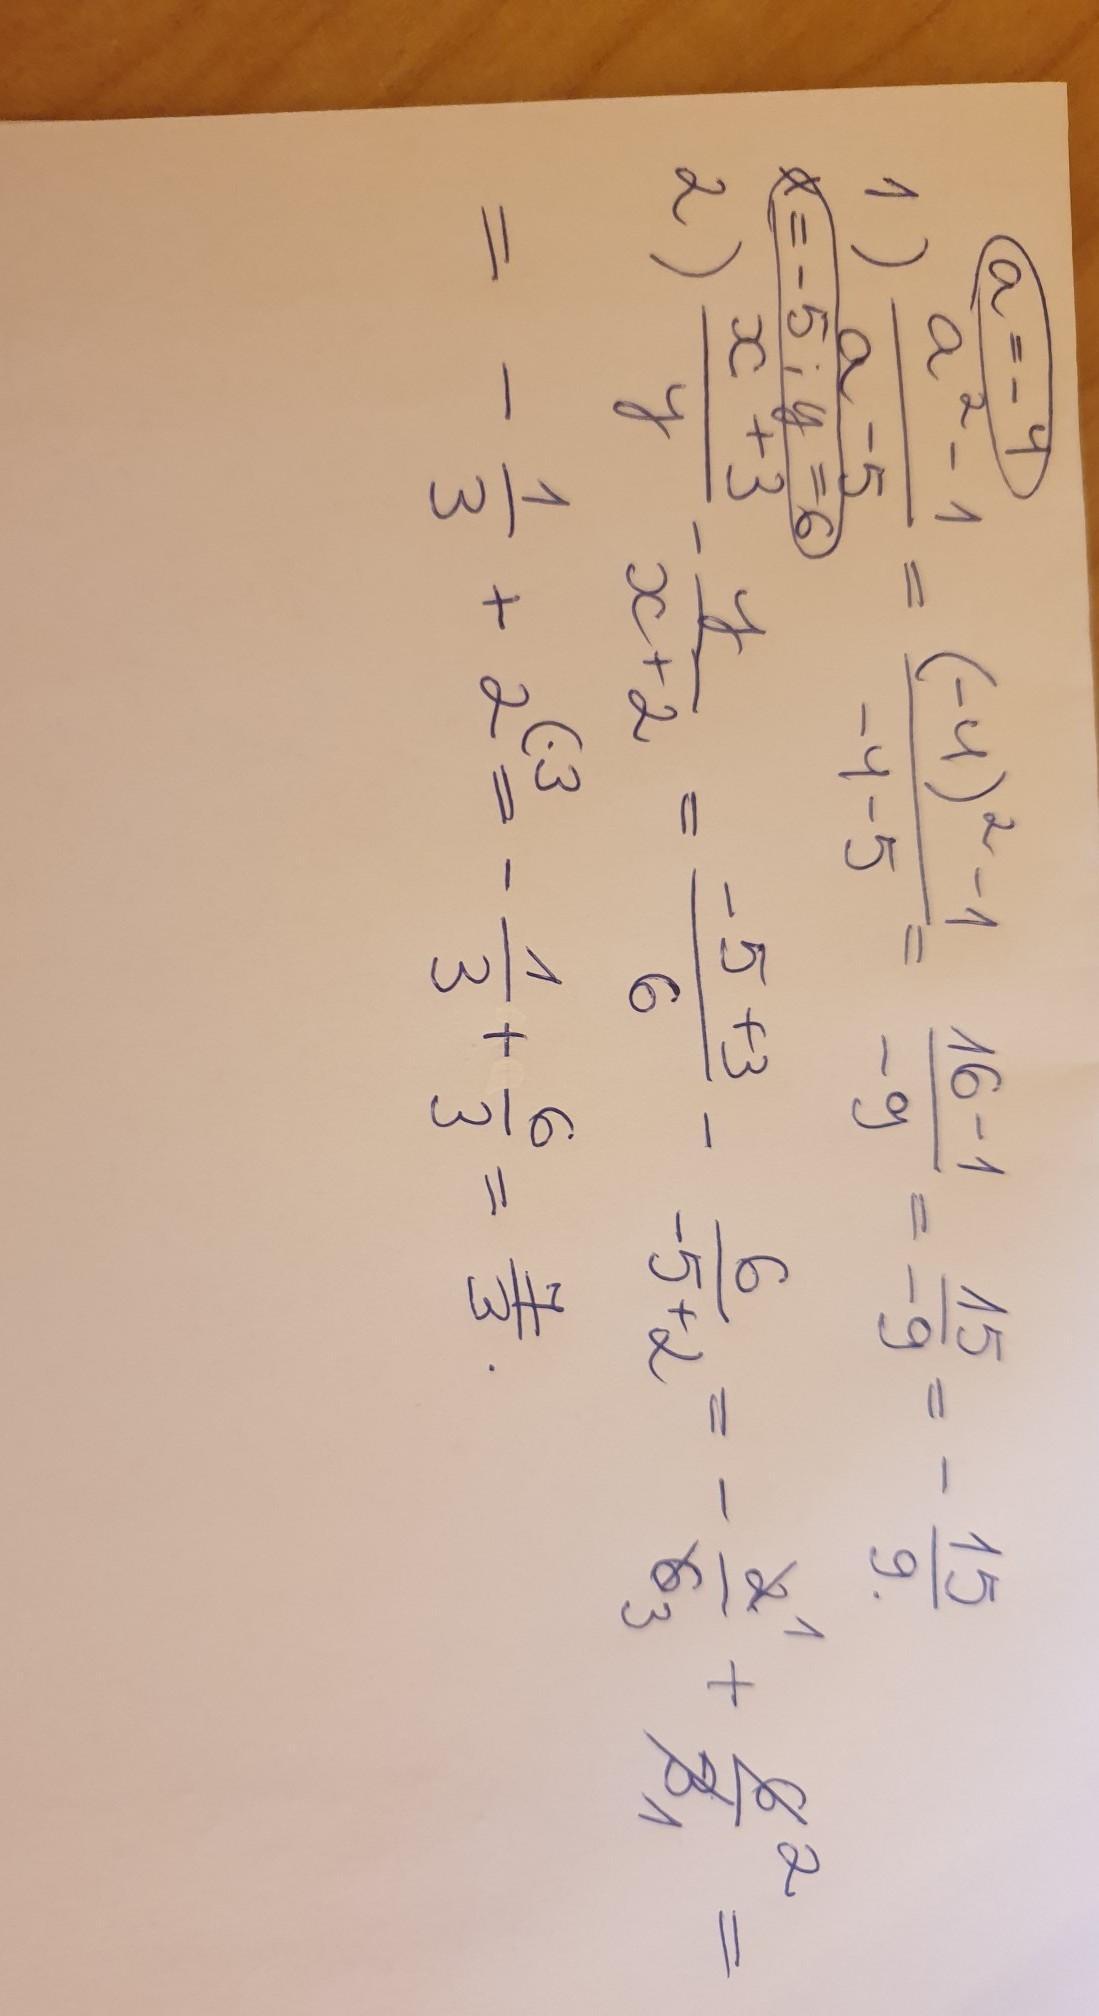 a = -4
1) a² - 1 / a - 5 = (-4)² - 1 / -4 - 5 = 16 - 1 / -9 = 15 / -9 = - 15 / 9.
x = -5; y = 6
2) x + 3 / y - y / x + 2 = -5 + 3 / 6 - 6 / -5 + 2 = - 2 1 / 6 3 + 6 2 / 3 1 =
= - 1 / 3 + 2 (·3 = - 1 / 3 + 6 / 3 = 7 / 3.